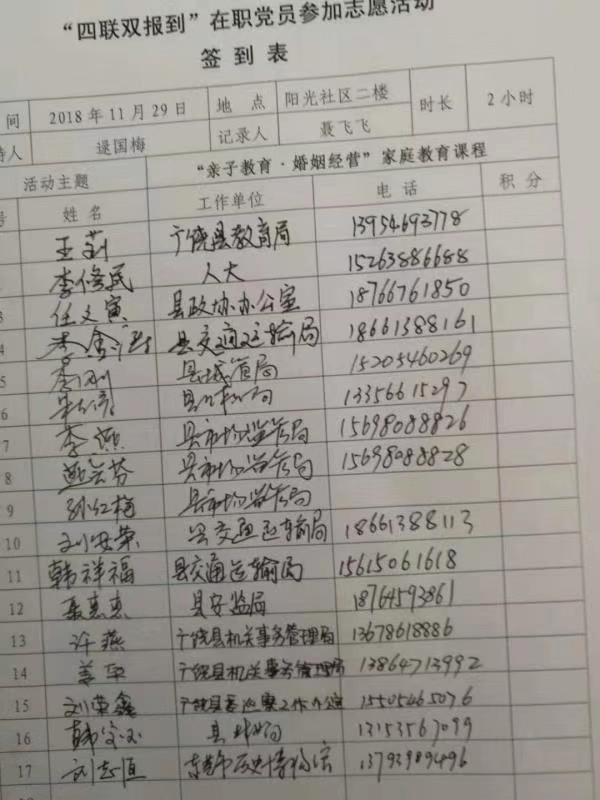 “四联双报到”在职党员参加志愿活动
签到表
间 2018年11月29日 地点 阳光社区二楼 时长 2小时
持人 逯国梅 记录人 聂飞飞
活动主题 “亲子教育·婚姻经营”家庭教育课程
号 姓名 工作单位 电话 积分
王莉 广饶县教育局 13954693778
李俊民 人大 15263886688
3 任文寅 县政协办公室 18766761850
4 县交通运输局 18661388161
5 李刚 县城管局 15205460269
6 13356615297
7 李燕 县市场监管局 15698088826
8 县市场监管局 15698088828
9 孙红梅 县市场监管局
10 刘安荣 县交通运输局 18661388113
11 韩祥福 县交通运输局 15615061618
12 聂惠惠 县安监局 18764593861
13 许燕 广饶县机关事务管理局 13678618886
14 姜军 广饶县机关事务管理局 13864713992
15 刘荣鑫 广饶县委巡察工作办公室 15505465076
16 县 局 13153567099
17 刘志恒 东营市历史博物馆 13793989496